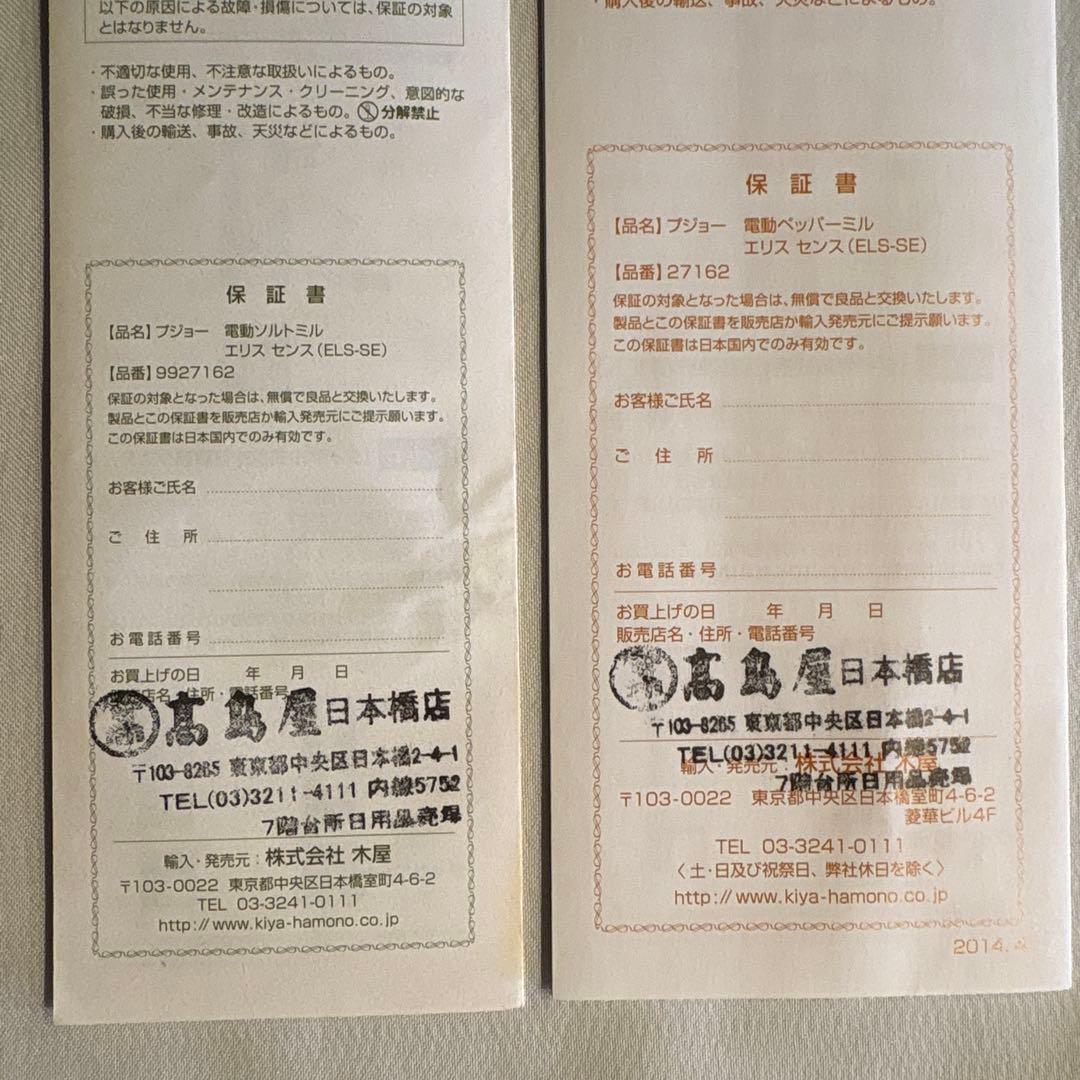 以下の原因による故障・損傷については、保証の対象
とはなりません。
・不適切な使用、不注意な取扱いによるもの。
・誤った使用・メンテナンス・クリーニング、意図的な
破損、不当な修理・改造によるもの。 分解禁止
・購入後の輸送、事故、天災などによるもの。
保証書
【品名】プジョー 電動ソルトミル
エリス センス(ELS-SE)
【品番】9927162
保証の対象となった場合は、無償で良品と交換いたします。
製品とこの保証書を販売店か輸入発売元にご提示願います。
この保証書は日本国内でのみ有効です。
お客様ご氏名
ご住所
お電話番号
お買上げの日 年 月 日
販売店名・住所・電話番号
髙島屋日本橋店
〒103-8265 東京都中央区日本橋2-4-1
TEL(03)3211-4111 内線5752
7階台所日用品売場
輸入・発売元:株式会社 木屋
〒103-0022 東京都中央区日本橋室町4-6-2
TEL 03-3241-0111
http://www.kiya-hamono.co.jp
・購入後の輸送、事故、天災などによるもの。
保証書
【品名】プジョー 電動ペッパーミル
エリス センス(ELS-SE)
【品番】27162
保証の対象となった場合は、無償で良品と交換いたします。
製品とこの保証書を販売店か輸入発売元にご提示願います。
この保証書は日本国内でのみ有効です。
お客様ご氏名
ご住所
お電話番号
お買上げの日 年 月 日
販売店名・住所・電話番号
髙島屋日本橋店
〒103-8265 東京都中央区日本橋2-4-1
TEL(03)3211-4111 内線5752
輸入・発売元:株式会社 木屋
7階台所日用品売場
〒103-0022 東京都中央区日本橋室町4-6-2
菱華ビル4F
TEL 03-3241-0111
〈土・日及び祝祭日、弊社休日を除く〉
http://www.kiya-hamono.co.jp
2014.